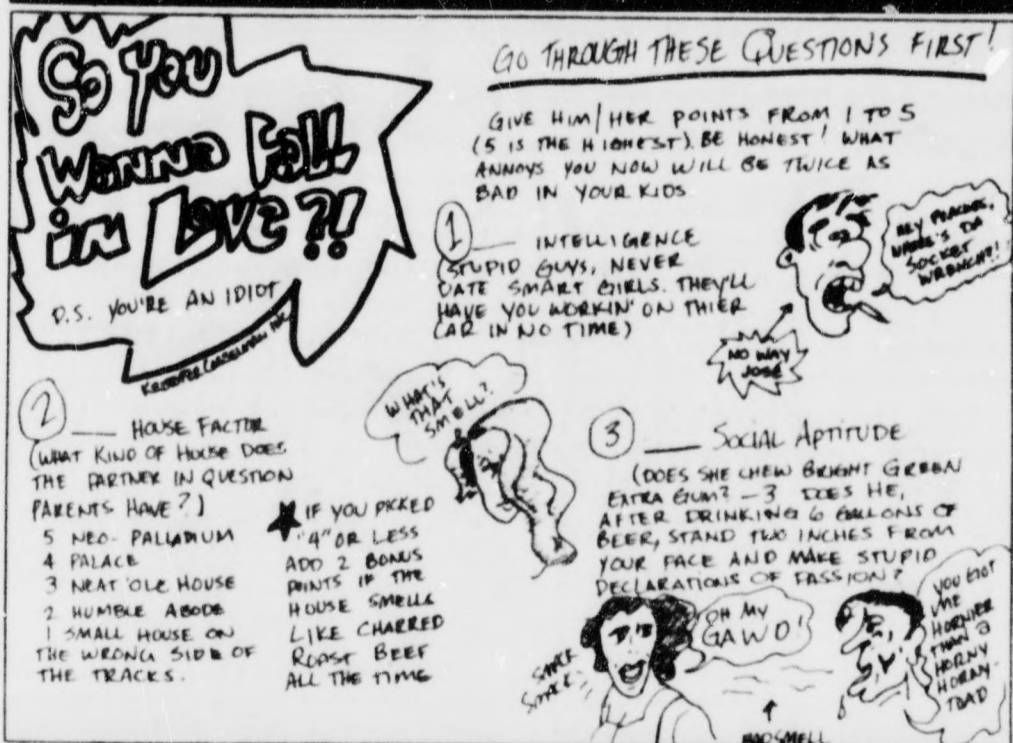 So You
Wanna Fall
in Love?!
P.S. YOU'RE AN IDIOT
GO THROUGH THESE QUESTIONS FIRST!
GIVE HIM/HER POINTS FROM 1 TO 5
(5 IS THE HIGHEST). BE HONEST! WHAT
ANNOYS YOU NOW WILL BE TWICE AS
BAD IN YOUR KIDS
1 ___ INTELLIGENCE
(STUPID GUYS, NEVER
DATE SMART GIRLS. THEY'LL
HAVE YOU WORKIN' ON THIER
CAR IN NO TIME)
HEY
WHERE'S DA
SOCKET
WRENCH?!!
NO WAY
JOSÉ
2 ___ HOUSE FACTOR
(WHAT KIND OF HOUSE DOES
THE PARTNER IN QUESTION
PARENTS HAVE?)
5 NEO-PALLADIUM
4 PALACE
3 NEAT OLE HOUSE
2 HUMBLE ABODE
1 SMALL HOUSE ON
THE WRONG SIDE OF
THE TRACKS.
★ IF YOU PICKED
"4" OR LESS
ADD 2 BONUS
POINTS IF THE
HOUSE SMELLS
LIKE CHARRED
ROAST BEEF
ALL THE TIME
WHAT'S
THAT
SMELL?
3 ___ SOCIAL APTITUDE
(DOES SHE CHEW BRIGHT GREEN
EXTRA GUM? -3 DOES HE,
AFTER DRINKING 6 GALLONS OF
BEER, STAND TWO INCHES FROM
YOUR FACE AND MAKE STUPID
DECLARATIONS OF PASSION?
SMACK
SMACK
OH MY
GAWD!
BAD SMELL
YOU GOT
ME
HORNIER
THAN A
HORNY
HORNY-
TOAD